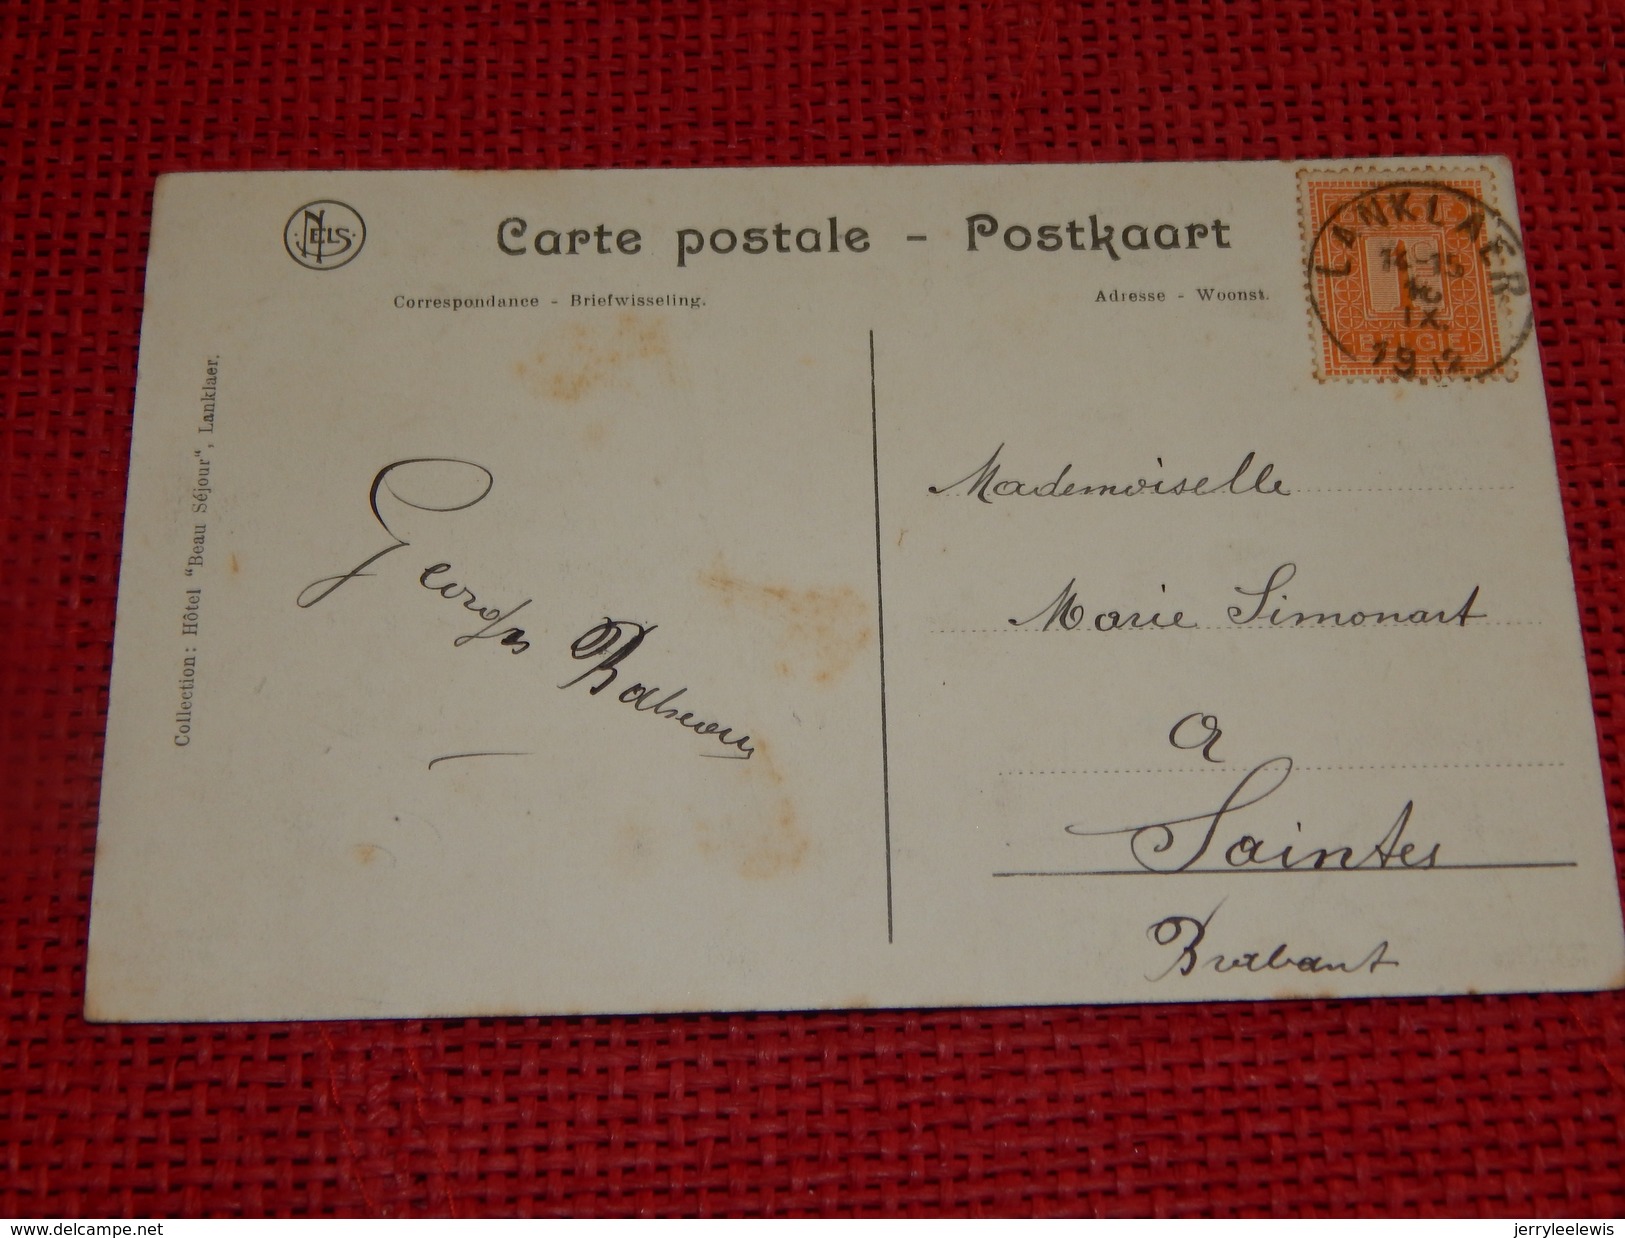 NELS
Carte postale - Postkaart
Correspondance - Briefwisseling.
Adresse - Woonst.
LANKLAER
IX
1912
1
BELGIE
Collection: Hôtel "Beau Séjour", Lanklaer.
Georges
Mademoiselle
Marie Simonart
à
Saintes
Brabant
delcampe.net
jerryleelewis